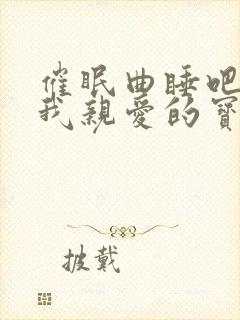 催眠曲睡吧
我親愛的寶
披戴